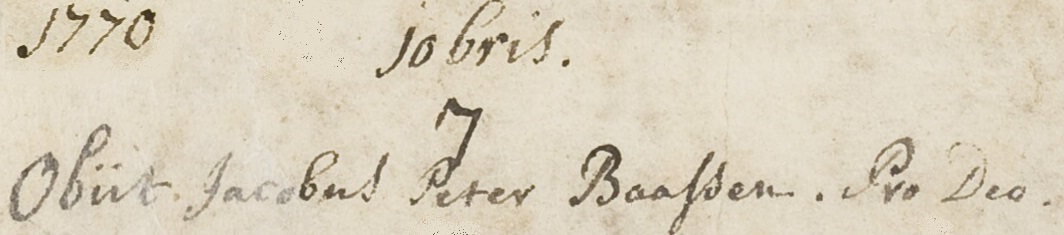 1770 10bris.
7
Obiit Jacobus Peter Baassen. Pro Deo.